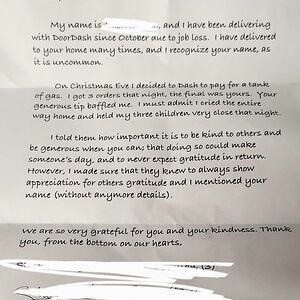 My name is , and I have been delivering
with DoorDash since October due to job loss. I have delivered
to your home many times, and I recognize your name, as
it is uncommon.
On Christmas Eve I decided to Dash to pay for a tank
of gas. I got 3 orders that night, the final was yours. Your
generous tip baffled me. I must admit I cried the entire
way home and held my three children very close that night.
I told them how important it is to be kind to others and
be generous when you can; that doing so could make
someone's day, and to never expect gratitude in return.
However, I made sure that they knew to always show
appreciation for others gratitude and I mentioned your
name (without anymore details).
We are so very grateful for you and your kindness. Thank
you, from the bottom on our hearts,
(3)